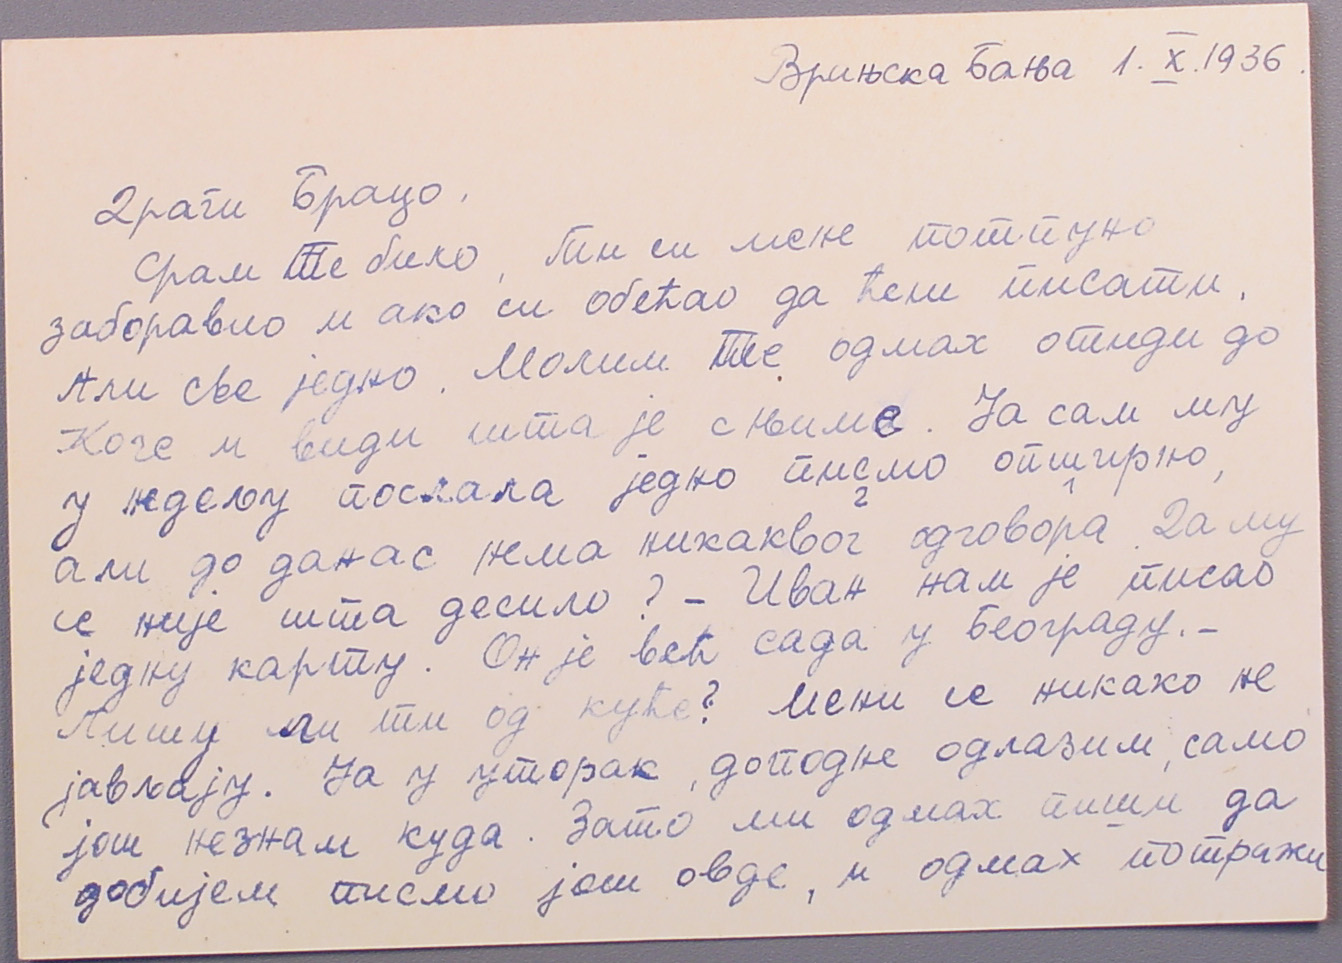 Врињска Бања 1. X. 1936.
Драги Брацо,
Срам Те било, Ти си мене потпуно
заборавио и ако си обећао да ћеш писати.
Али све једно. Молим Те одмах отиди до
Коче и види шта је с њиме. Ја сам му
у недељу послала једно писмо опширно,
али до данас нема никаквог одговора. Да му
се није шта десило? – Иван нам је писао
једну карту. Он је већ сада у Београду. –
Пишу ли ти од куће? Мени се никако не
јављају. Ја у уторак, доподне одлазим, само
још незнам куда. Зато ми одмах пиши да
добијем писмо још овде, и одмах потражи